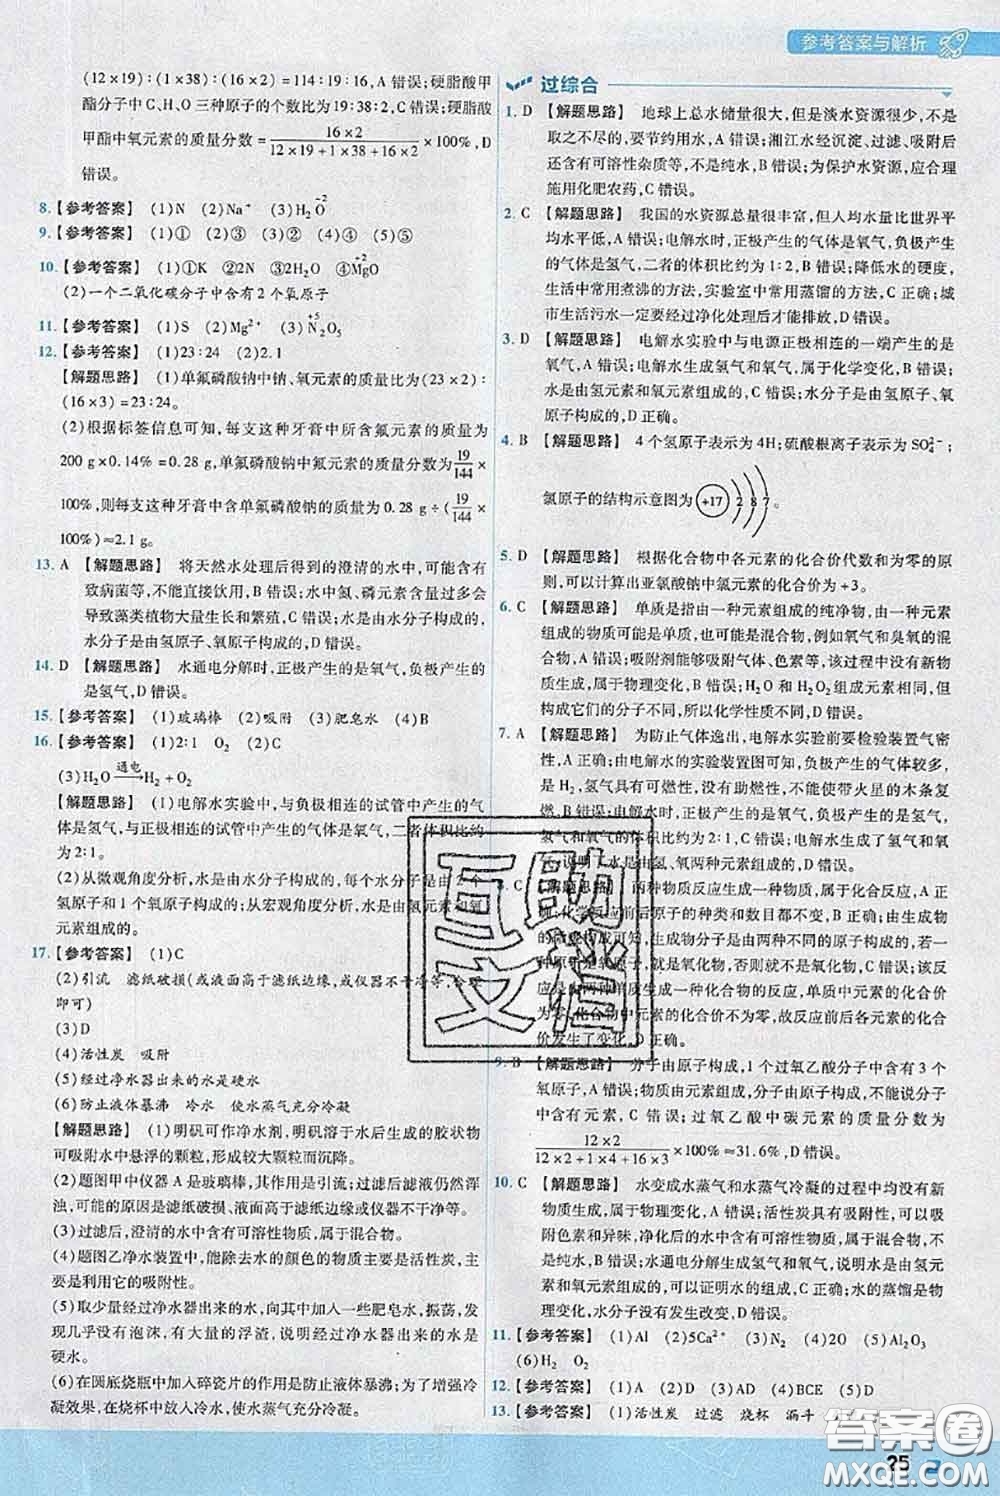 参考答案与解析
(12×19):(1×38):(16×2)=114:19:16,A 错误;硬脂酸甲
酯分子中 C、H、O 三种原子的个数比为 19:38:2,C 错误;硬脂酸
甲酯中氧元素的质量分数=16×2/(12×19+1×38+16×2)×100%,D
错误。
8.【参考答案】 (1)N (2)Na⁺ (3)H₂O(-2)
9.【参考答案】 (1)① (2)③ (3)② (4)⑤ (5)⑤
10.【参考答案】 (1)①K ②2N ③H₂O ④MgO(+2)
(2)一个二氧化碳分子中含有 2 个氧原子
11.【参考答案】 (1)S (2)Mg²⁺ (3)N₂O₅(+5)
12.【参考答案】 (1)23:24 (2)2.1
【解题思路】 (1)单氟磷酸钠中钠、氧元素的质量比为(23×2):
(16×3)=23:24。
(2)根据标签信息可知,每支这种牙膏中所含氟元素的质量为
200 g×0.14%=0.28 g,单氟磷酸钠中氟元素的质量分数为19/144×
100%,则每支这种牙膏中含单氟磷酸钠的质量为 0.28 g÷(19/144×
100%)≈2.1 g。
13. A 【解题思路】 将天然水处理后得到的澄清的水中,可能含有
致病菌等,不能直接饮用,B 错误;水中氮、磷元素含量过多会
导致藻类植物大量生长和繁殖,C 错误;水是由水分子构成的,
水分子是由氢原子、氧原子构成的,D 错误。
14. D 【解题思路】 水通电分解时,正极产生的是氧气,负极产生的
是氢气,D 错误。
15.【参考答案】 (1)玻璃棒 (2)吸附 (3)肥皂水 (4)B
16.【参考答案】 (1)2:1 O₂ (2)C
(3)H₂O—通电→H₂+O₂
【解题思路】 (1)电解水实验中,与负极相连的试管中产生的气
体是氢气,与正极相连的试管中产生的气体是氧气,二者体积比约
为 2:1。
(2)从微观角度分析,水是由水分子构成的,每个水分子是由 2 个
氢原子和 1 个氧原子构成的;从宏观角度分析,水是由氢元素和氧
元素组成的。
17.【参考答案】 (1)C
(2)引流 滤纸破损(或液面高于滤纸边缘,或仪器不干净等,合理
即可)
(3)D
(4)活性炭 吸附
(5)经过净水器出来的水是硬水
(6)防止液体暴沸 冷水 使水蒸气充分冷凝
【解题思路】 (1)明矾可作净水剂,明矾溶于水后生成的胶状物
可吸附水中悬浮的颗粒,形成较大颗粒而沉降。
(2)题图甲中仪器 A 是玻璃棒,其作用是引流;过滤后滤液仍然浑
浊,可能的原因是滤纸破损、液面高于滤纸边缘或仪器不干净等。
(3)过滤后,澄清的水中含有可溶性物质,属于混合物。
(4)题图乙净水装置中,能除去水的颜色的物质主要是活性炭,主
要是利用了它的吸附性。
(5)取少量经过净水器出来的水,向其中加入一些肥皂水,振荡,发
现几乎没有泡沫,有大量的浮渣,说明经过净水器出来的水是
硬水。
(6)在圆底烧瓶中加入碎瓷片的作用是防止液体暴沸;为了增强冷
凝效果,在烧杯中放入冷水,使水蒸气充分冷凝。
过综合
1. D 【解题思路】 地球上总水储量很大,但是淡水资源很少,不是
取之不尽的,要节约用水,A 错误;湘江水经沉淀、过滤、吸附后
还含有可溶性杂质等,不是纯水,B 错误;为保护水资源,应合理
施用化肥农药,C 错误。
2. C 【解题思路】 我国的水资源总量很丰富,但人均水量比世界平
均水平低,A 错误;电解水时,正极产生的气体是氧气,负极产生的
气体是氢气,二者的体积比约为 1:2,B 错误;降低水的硬度,
生活中常用煮沸的方法,实验室中常用蒸馏的方法,C 正确;城
市生活污水一定要经过净化处理后才能排放,D 错误。
3. D 【解题思路】 电解水实验中与电源正极相连的一端产生的是
氧气,A 错误;电解水生成氢气和氧气,属于化学变化,B 错误;
水是由氢元素和氧元素组成的,C 错误;水分子是由氢原子、氧
原子构成的,D 正确。
4. B 【解题思路】 4 个氢原子表示为 4H;硫酸根离子表示为 SO₄²⁻;
氯原子的结构示意图为 +17 2 8 7 。
5. D 【解题思路】 根据化合物中各元素的化合价代数和为零的原
则,可以计算出亚氯酸钠中氯元素的化合价为+3。
6. C 【解题思路】 单质是指由一种元素组成的纯净物,由一种元素
组成的物质可能是单质,也可能是混合物,例如氧气和臭氧的混
合物,A 错误;吸附剂能够吸附气体、色素等,该过程中没有新物
质生成,属于物理变化,B 错误;H₂O 和 H₂O₂组成元素相同,但
构成它们的分子不同,所以化学性质不同,D 错误。
7. A 【解题思路】 为防止气体逸出,电解水实验前要检验装置气密
性,A 正确;由电解水的实验装置图可知,b 处的气体较多,
是 H₂,氢气具有可燃性,不能助燃,不能使带火星的木条复
燃,B 错误;电解水时,正极产生的是氧气,负极产生的是氢气,
氢气和氧气的体积比约为 2:1,C 错误;电解水生成了氢气和氧
气,说明了水是由氢、氧两种元素组成的,D 错误。
8. C 【解题思路】 两种物质反应生成一种物质,属于化合反应,A 正
确;化学反应前后原子的种类和数目都不变,B 正确;由生成物
分子的构成可知,生成物分子是由两种不同的原子构成的,若其中一
种原子是氧原子,就是氧化物,否则就不是氧化物,C 错误;该反
应是由两种单质生成一种化合物的反应,单质中元素的化合价
为零,化合物中元素的化合价不为零,故反应前后有元素的化合
价发生了变化,D 正确。
9. B 【解题思路】 分子由原子构成,1 个过氧乙酸分子中含有 3 个
氧原子,A 错误;物质由元素组成,分子由原子构成,不能说分子中
含有元素,C 错误;过氧乙酸中碳元素的质量分数为
12×2/(12×2+1×4+16×3)×100%≈31.6%,D 错误。
10. C 【解题思路】 水变成水蒸气和水蒸气冷凝的过程中均没有新
物质生成,属于物理变化,A 错误;活性炭具有吸附性,可以吸
附色素和异味,净化后的水中可能含有可溶性物质等杂质,不
是纯水,B 错误;水通电分解生成氢气和氧气,说明水是由氢元
素和氧元素组成的,可以证明水的组成,C 正确;水的蒸馏是物
理变化,水分子没有发生改变,D 错误。
11.【参考答案】 (1)Al (2)5Ca²⁺ (3)N₂ (4)2O (5)Al₂O₃
(6)H₂O O₂
12.【参考答案】 (1)D (2)D (3)AD (4)BCE (5)D
13.【参考答案】 (1)活性炭 过滤 烧杯 漏斗
25
互助文
答案圈
MXQE.COM